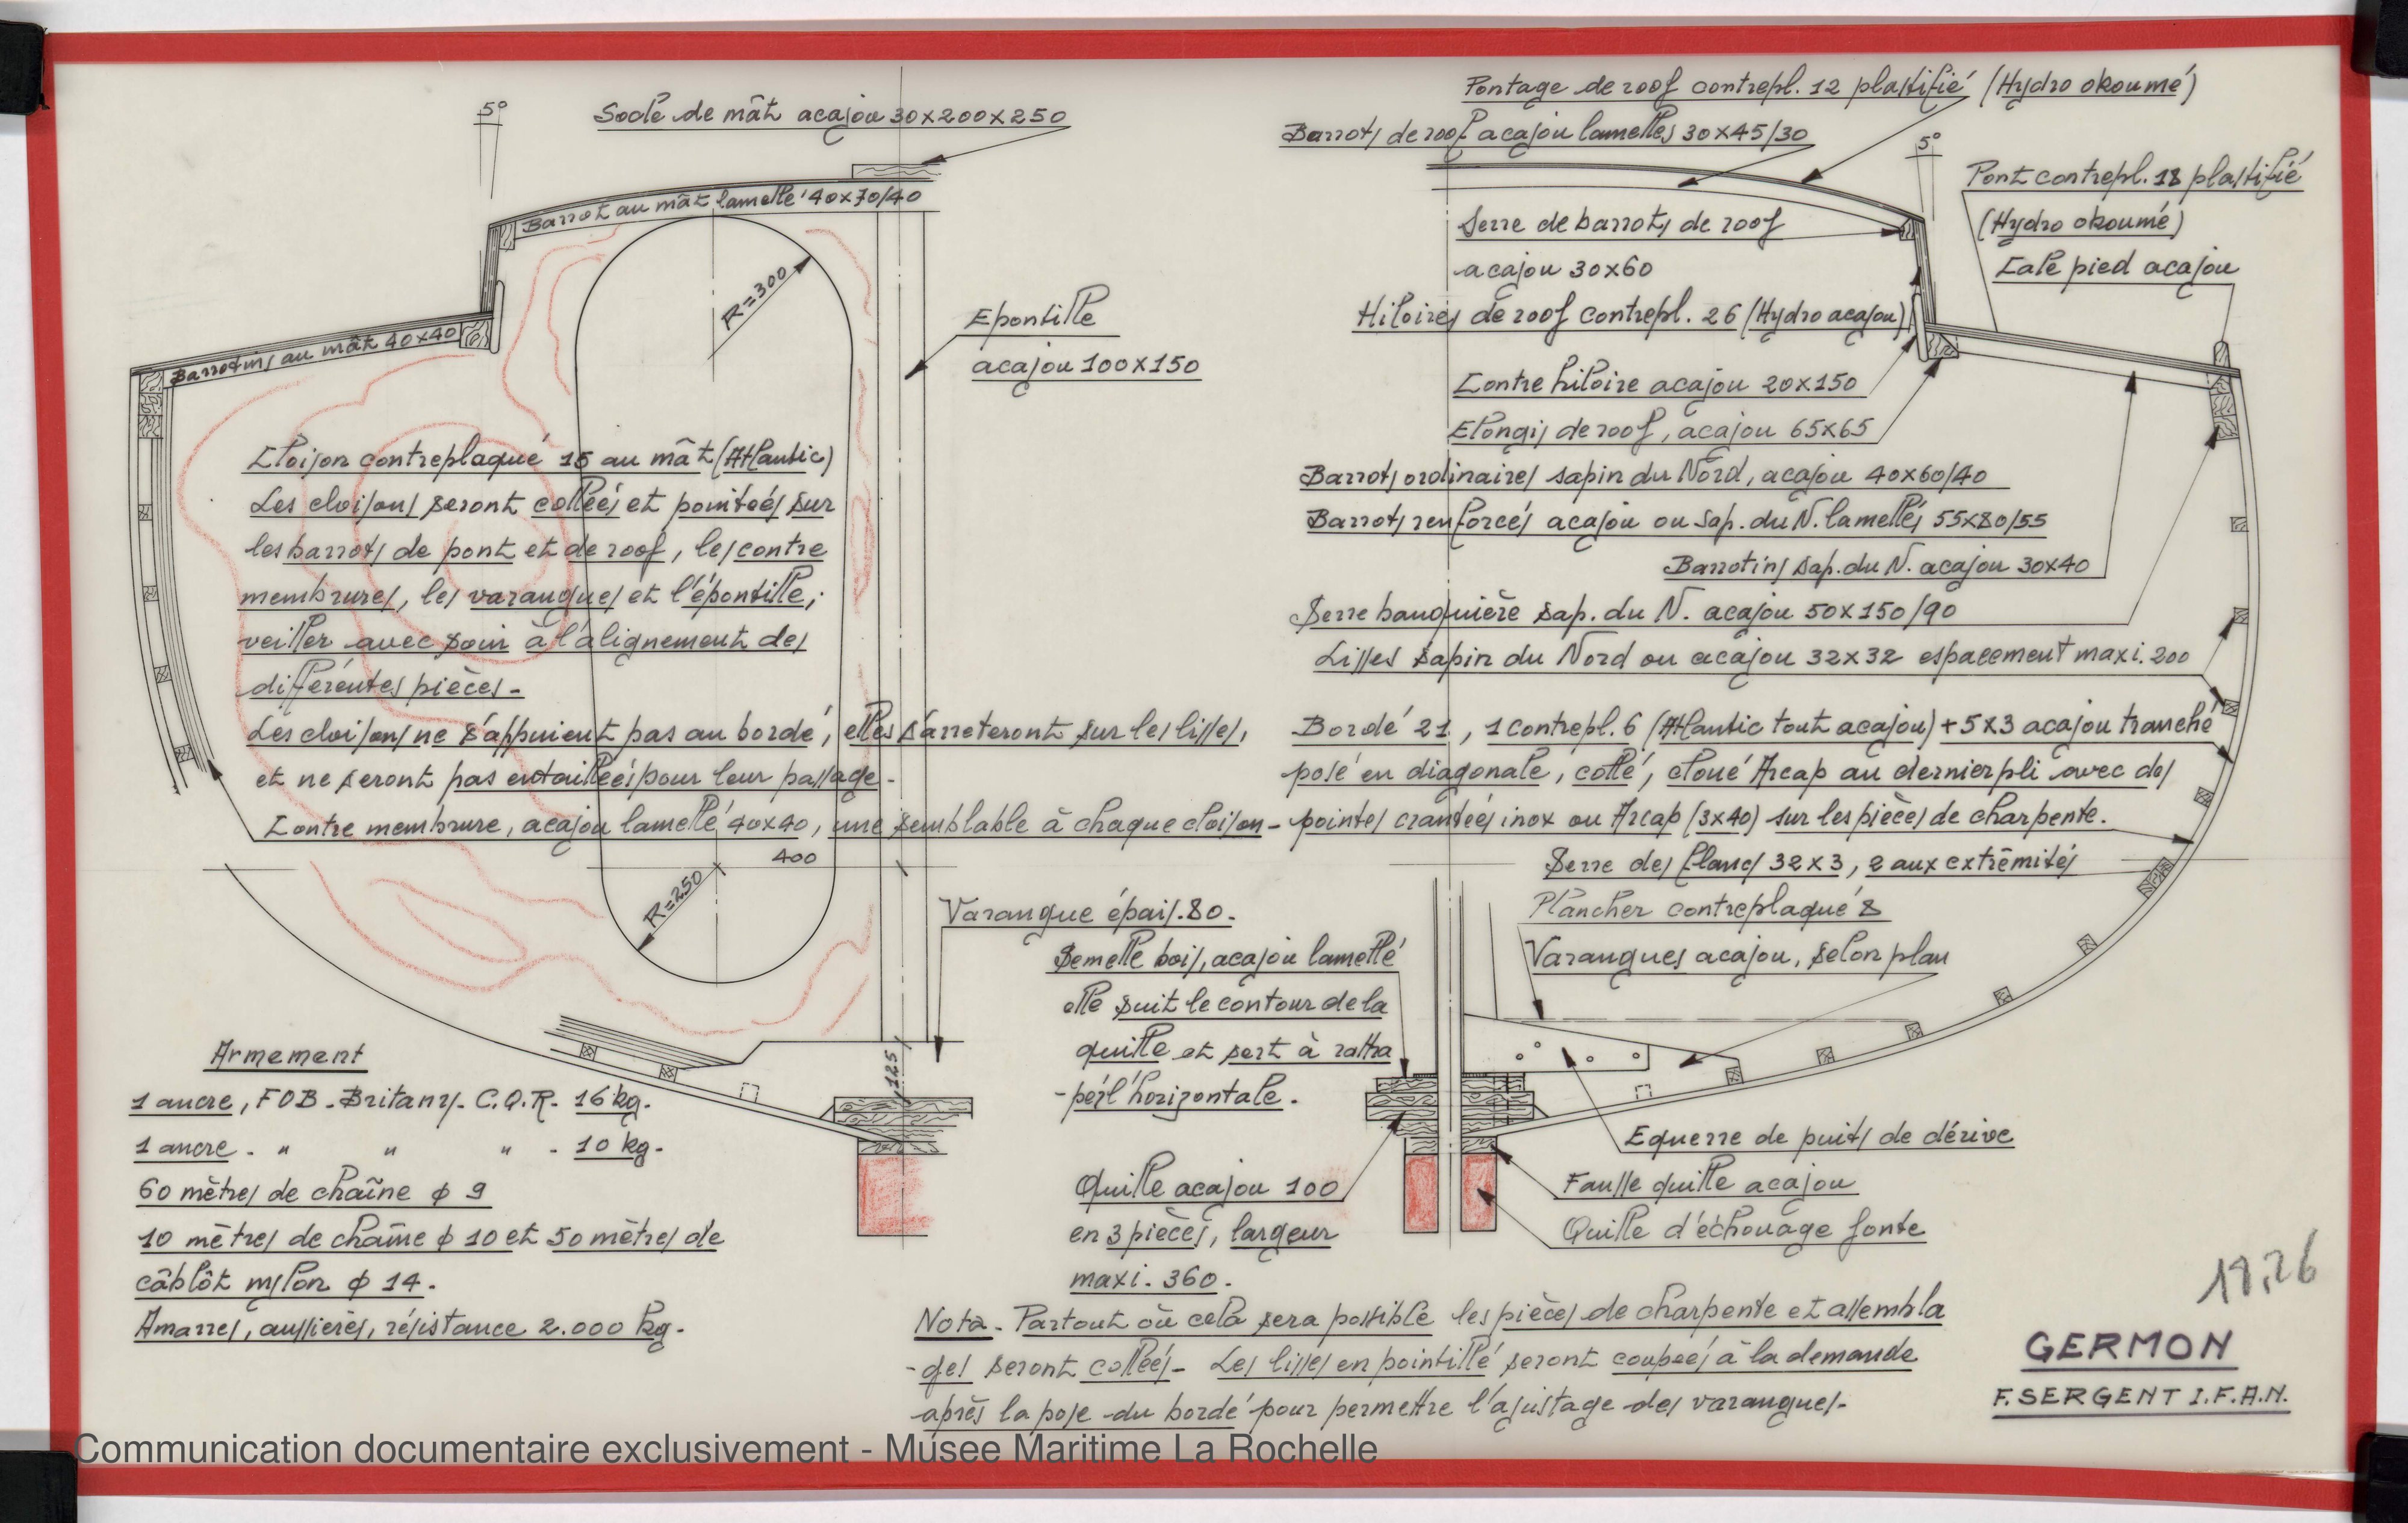 5°
Socle de mât acajou 30x200x250
Barrot au mât lamellé 40x70/40
R=300
Barrotins au mât 40x40
Epontille
acajou 100x150
Cloison contreplaqué 15 au mât (Atlantic)
Les cloisons seront collées et pointées sur
les barrots de pont et de roof, les contre
membrures, les varangues et l'épontille,
veiller avec soin à l'alignement des
différentes pièces-
Les cloisons ne s'appuient pas au bordé, elles s'arreteront sur les lisses,
et ne seront pas entaillées pour leur passage-
Contre membrure, acajou lamellé 40x40, une semblable à chaque cloison-
400
R=250
Varangue épais.80.
125
Armement
1 ancre, FOB-Britany-C.Q.R-16kg.
1 ancre - " " " -10kg-
60 mètres de chaîne ϕ 9
10 mètres de chaîne ϕ 10 et 50 mètres de
câblôt nylon ϕ 14.
Amarres, aussières, résistance 2.000 kg.
Pontage de roof contrepl. 12 plastifié (Hydro okoumé)
Barrots de roof acajou lamellés 30x45/30
5°
Pont contrepl. 18 plastifié
(Hydro okoumé)
Cale pied acajou
Serre de barrots de roof
acajou 30x60
Hiloires de roof contrepl. 26 (Hydro acajou)
Contre hiloire acajou 20x150
Elongis de roof, acajou 65x65
Barrots ordinaires sapin du Nord, acajou 40x60/40
Barrots renforcés acajou ou Sap. du N. lamellés 55x80/55
Barrotins Sap. du N. acajou 30x40
Serre bauquière Sap. du N. acajou 50x150/90
Lisses Sapin du Nord ou acajou 32x32 espacement maxi. 200
Bordé 21, 1 contrepl. 6 (Atlantic tout acajou) + 5x3 acajou tranché
posé en diagonale, collé, cloué Arcap au dernier pli avec des
pointes crantées inox ou Arcap (3x40) sur les pièces de charpente.
Serre des flancs 32x3, 2 aux extrêmités
Plancher contreplaqué 8
Varangues acajou, selon plan
Semelle bois, acajou lamellé
elle suit le contour de la
quille et sert à rattra
-per l'horizontale.
Quille acajou 100
en 3 pièces, largeur
maxi. 360.
Equerre de puits de dérive
Fausse quille acajou
Quille d'échouage fonte
Nota- Partout où cela sera possible les pièces de charpente et assembla
-ges seront collées- Les lisses en pointillé seront coupées à la demande
après la pose du bordé pour permettre l'ajustage des varangues-
GERMON
F. SERGENT I.F.A.N.
Communication documentaire exclusivement - Musee Maritime La Rochelle